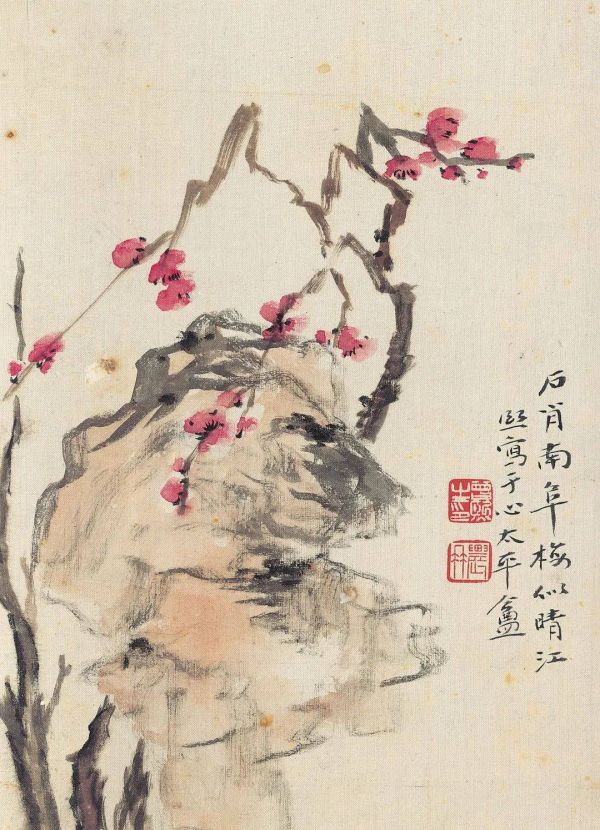 石肖南阜梅似晴江
熙寫于心太平盦